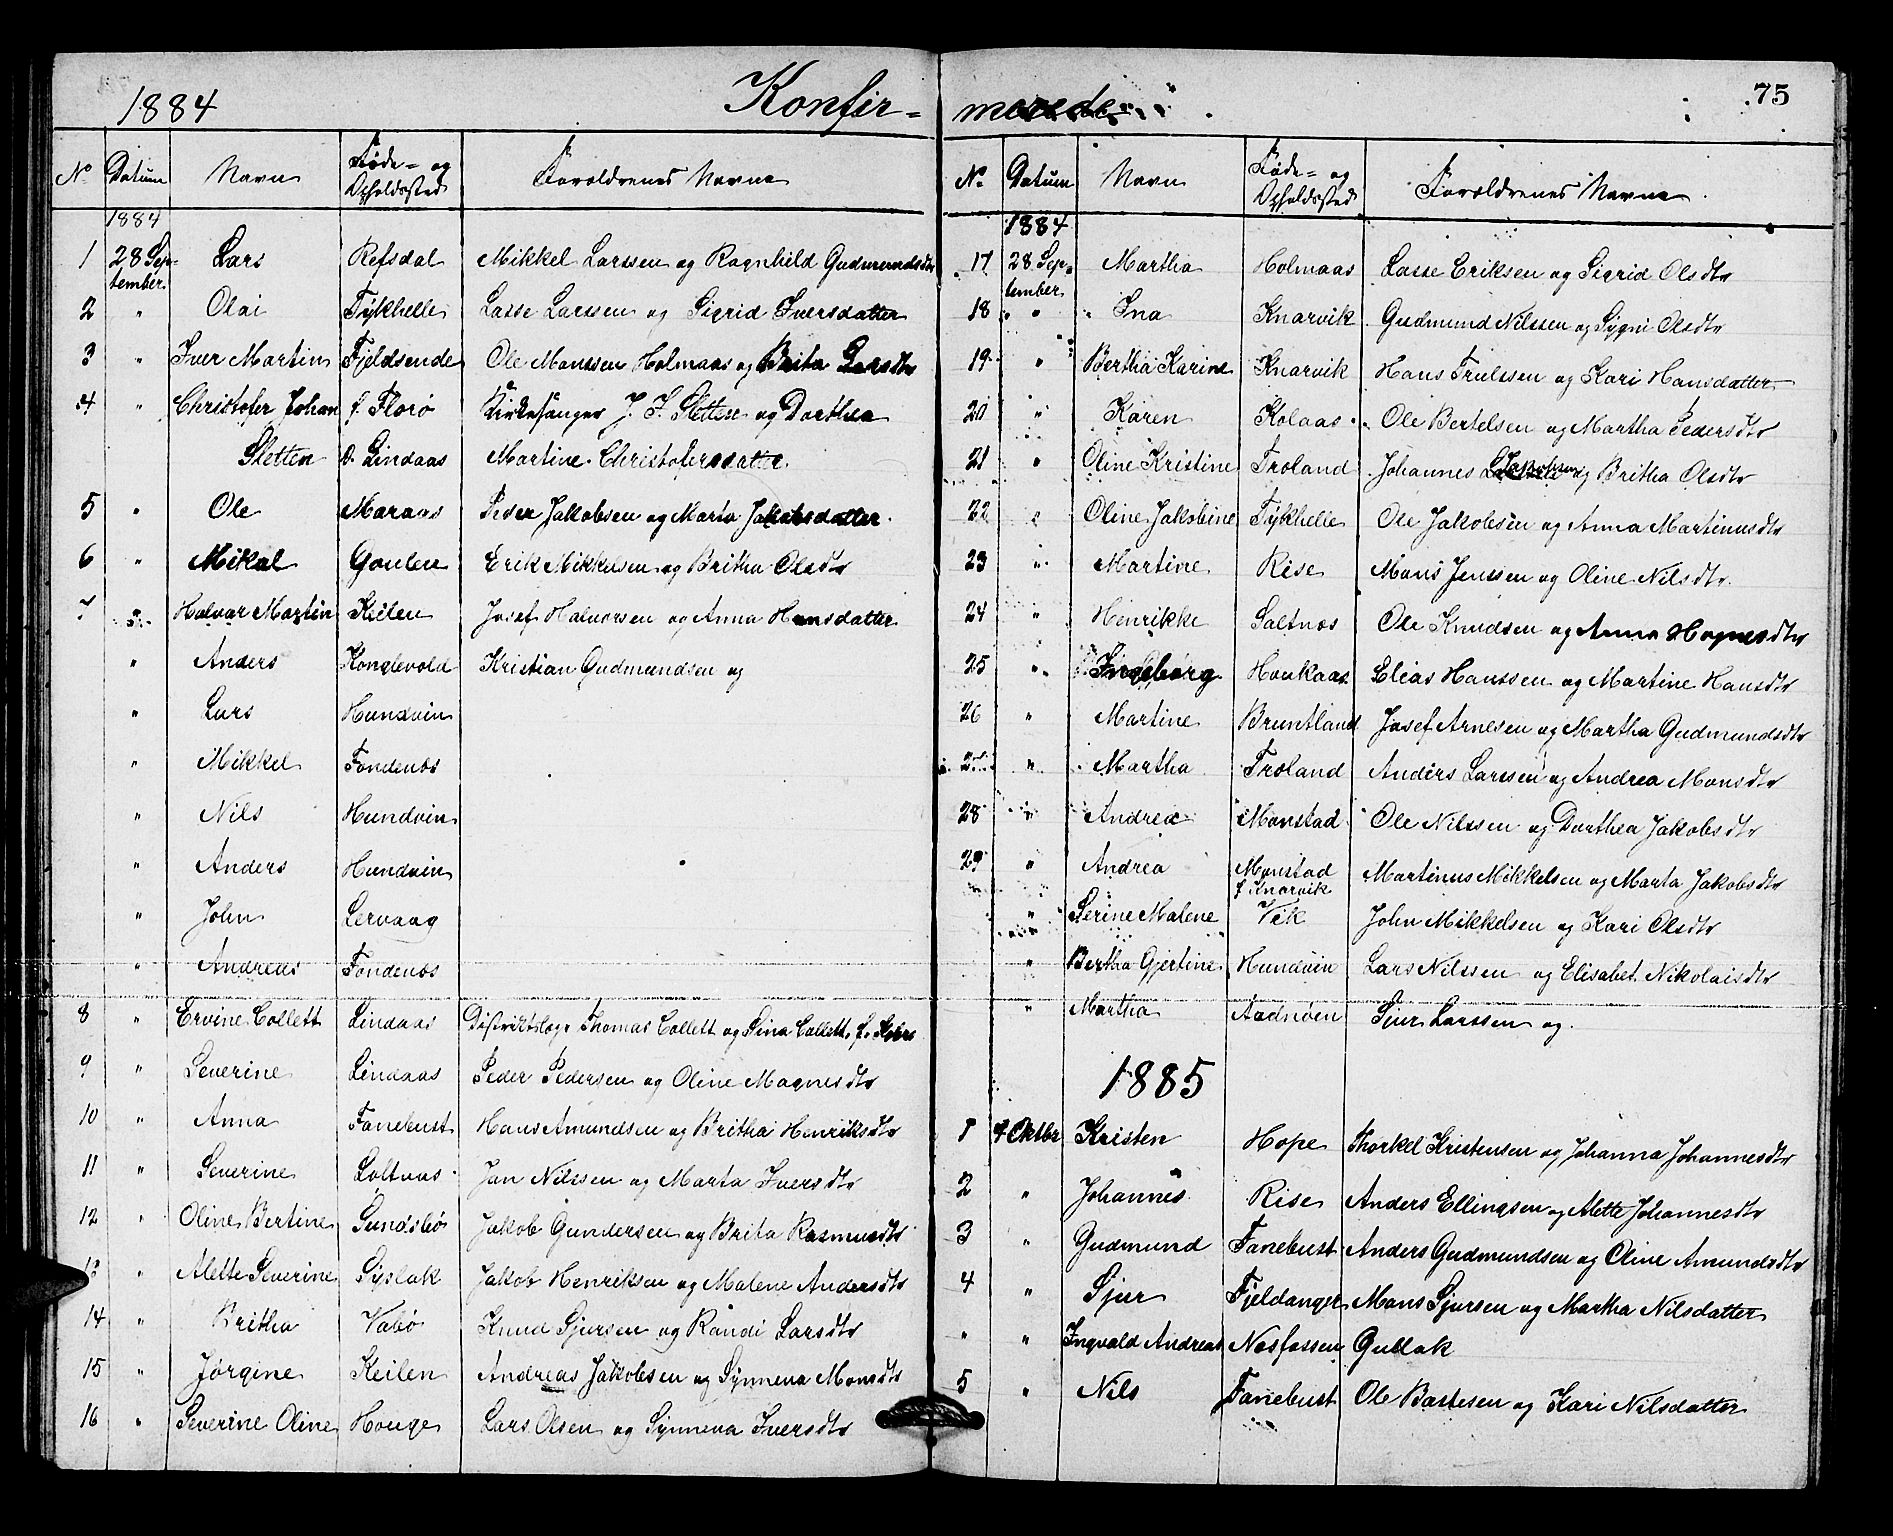 1884 Konfir-
No Datum Navn Føde- og Opholdssted Forældrenes Navne
1884
1 28 Sep- Lars Refsdal Mikkel Larssen og Ragnhild Gudmundsdtr
tember
2 " Olai Tykhelle Lasse Larssen og Sigrid Iversdatter
3 " Iver Martin Fjeldsende Ole Monssen Holmaas og Brita Larsdtr
4 " Christofer Johan f. Florø Kirkesanger J. F. Sletten og Dorthea
Sletten O. Lindaas Martine Christofersdatter.
5 " Ole Maraas Peder Jakobsen og Marta Jakobsdatter.
6 " Mikal Goulen Erik Mikkelsen og Britha Olsdtr
7 " Halvor Martin Keilen Josef Halvorsen og Anna Hansdatter
" Anders Konglevold Kristian Gudmundsen og
" Lars Hundvin
" Mikkel Fondenæs
" Nils Hundvin
" Anders Hundvin
" John Lervaag
" Andreas Fondenæs
8 " Ervine Collett Lindaas Distriktslæge Thomas Collett og Sina Collett, f.
9 " Severine Lindaas Peder Pedersen og Oline Magnesdtr
10 " Anna Fanebust Hans Amundsen og Britha Henriksdtr
11 " Severine Loltvas Jan Nilssen og Marta Iversdtr
12 " Oline Bertine Sundsbø Jakob Gundersen og Brita Rasmusdtr
13 " Alette Severine Syslak Jakob Henriksen og Malene Andersdtr
14 " Britha Vabø Knud Sjursen og Randi Larsdtr
15 " Jørgine Keilen Andreas Jakobsen og Synneva Monsdtr
16 " Severine Oline Houge Lars Olsen og Synneva Iversdtr
merede 75
No Datum Navn Føde- og Opholdssted Forældrenes Navne
1884
17 28 Sep- Martha Holmaas Lasse Eriksen og Sigrid Olsdtr
tember
18 " Ina Knarvik Gudmund Nilssen og Sygni Olsdtr
19 " Bertha Karine Knarvik Hans Trulssen og Kari Hansdatter
20 " Karen Kolaas Ole Bertelsen og Martha Pedersdtr
21 " Oline Kristine Troland Johannes Jakobsen og Britha Olsdtr
22 " Oline Jakobine Tykhelle Ole Jakobsen og Anna Martinusdtr
23 " Martine Rise Mons Jenssen og Oline Nilsdtr.
24 " Henrikke Saltnæs Ole Knudsen og Anna Magnesdtr
25 " Ingeborg Houkaas Elias Hanssen og Martine Hansdtr
26 " Martine Bruntland Josef Arnesen og Martha Gudmundsdtr
27 " Martha Troland Anders Larssen og Andrea Monsdtr
28 " Andrea Monstad Ole Nilssen og Dorthea Jakobsdtr
29 " Andrea Monstad Martinus Mikkelsen og Marta Jakobsdtr
f. Knarvik
" Serine Malene Vik John Mikkelsen og Kari Olsdtr
" Bertha Gjertine Hundvin Lars Nilssen og Elisabet Nikolaisdtr
" Martha Aadnøen Sjur Larssen og.
1885
1 4 Oktbr Kristen Hope Thorkel Kristensen og Johanna Johannesdtr
2 " Johannes Rise Anders Ellingsen og Alette Johannesdtr
3 " Gudmund Fanebust Anders Gudmundsen og Oline Amundsdtr
4 " Sjur Fjeldanger Mons Sjursen og Martha Nilsdatter
" " Ingvald Andreas Nosfossen Gullak
5 " Nils Fanebust Ole Bastesen og Kari Nilsdatter